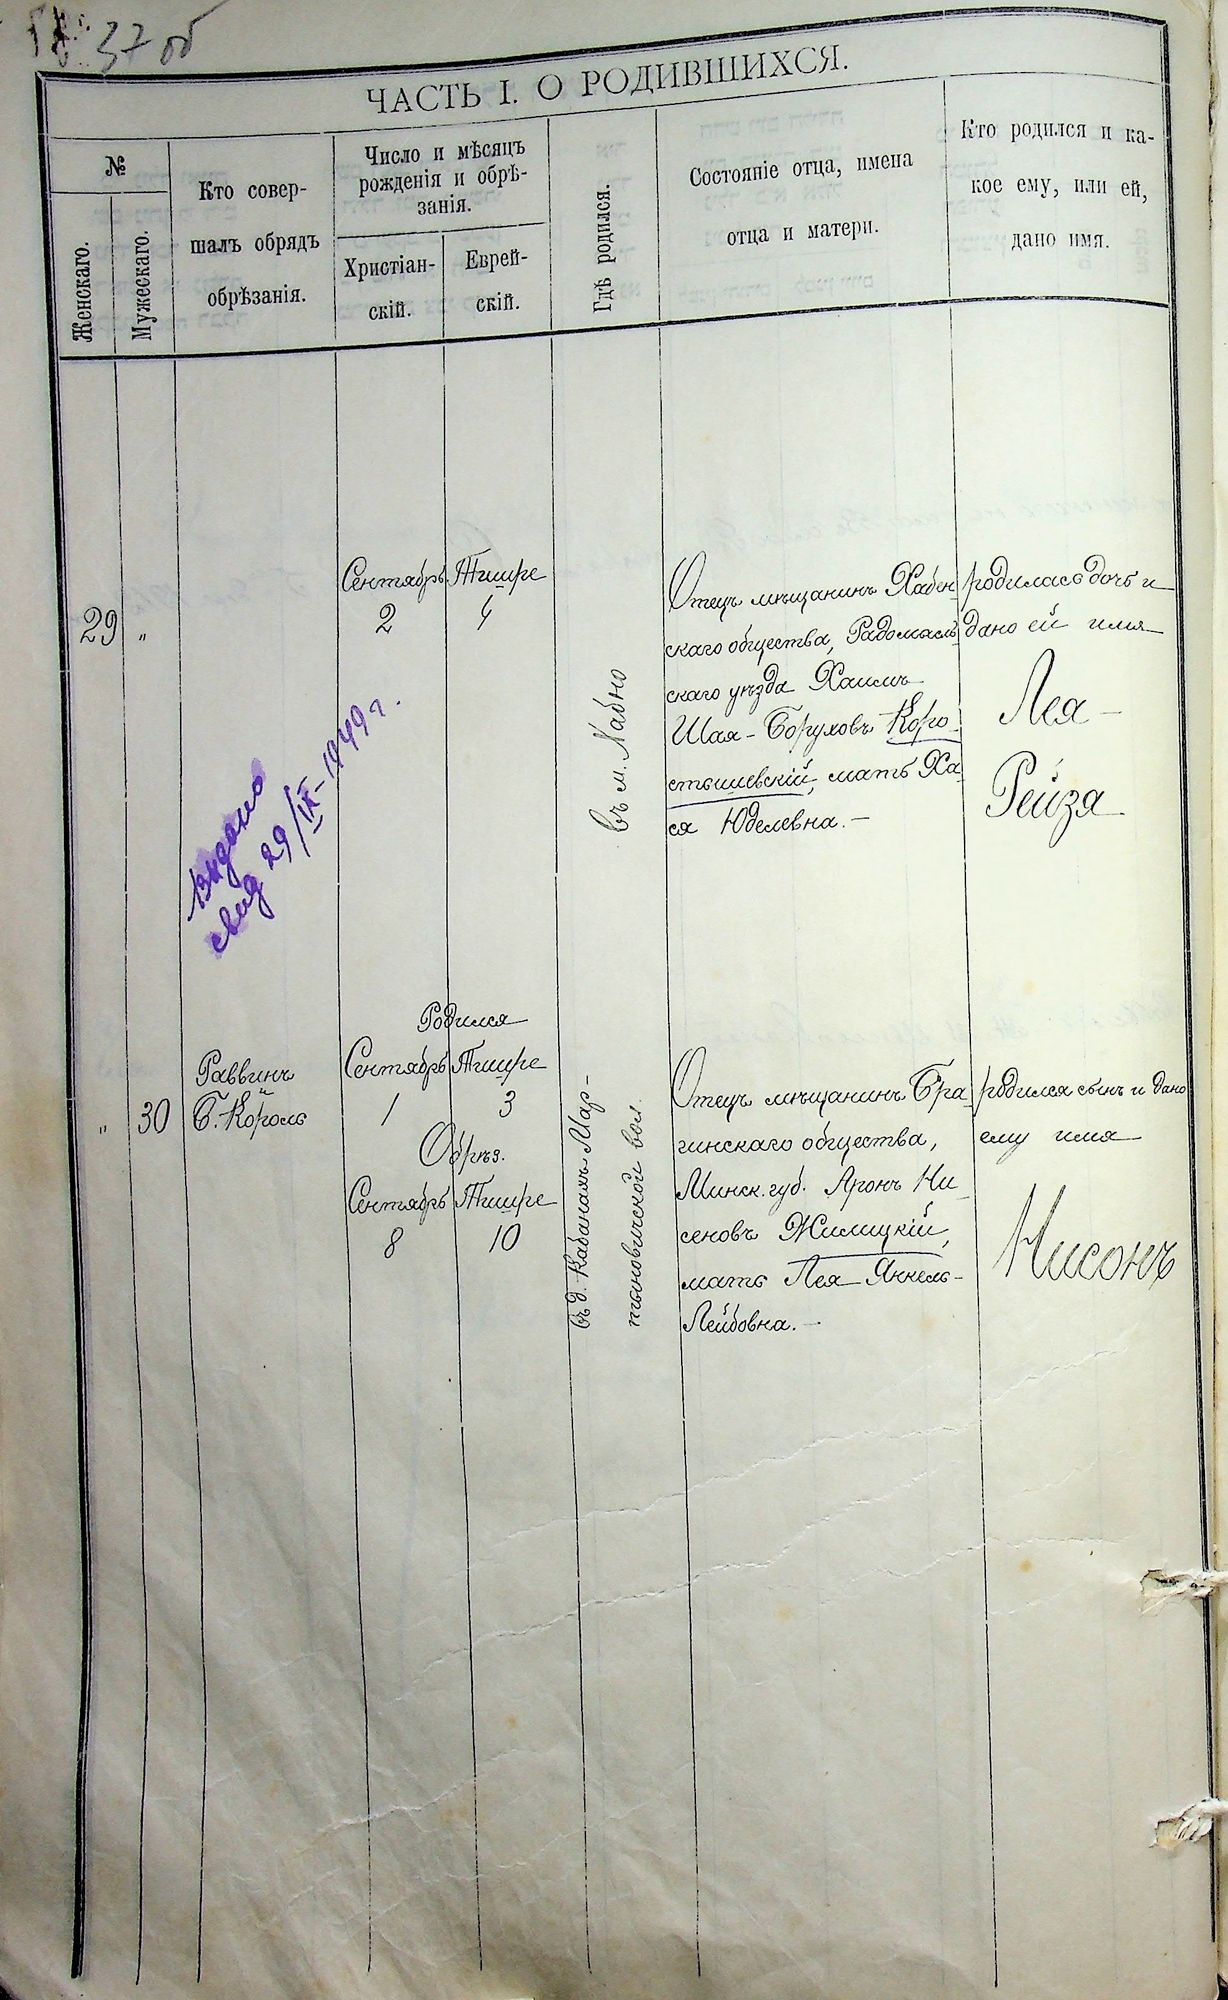 37 об
ЧАСТЬ I. О РОДИВШИХСЯ.
№
Женскаго.
Мужескаго.
Кто совер-
шалъ обрядъ
обрѣзанія.
Число и мѣсяцъ
рожденія и обрѣ-
занія.
Христіан-
скій.
Еврей-
скій.
Гдѣ родился.
Состояніе отца, имена
отца и матери.
Кто родился и ка-
кое ему, или ей,
дано имя.
29 "
Сентябрь
2
Тишре
4
въ м.
Отецъ мѣщанинъ Хабен
скаго общества, Радомысль
скаго уѣзда Хаимъ
Шая-Боруховъ Коро-
стышевскій, мать Ха
ся Юделевна.-
родилась дочь и
дано ей имя
Лея-
Рейза
Выдано
свид 29/IX-1949 г.
" 30
Раввинъ
Б. Король
Родился
Сентябрь
1
Тишре
3
Обрѣз.
Сентябрь
8
Тишре
10
въ д. Кабанахъ Мар-
тыновичской вол.
Отецъ мѣщанинъ Бра
гинскаго общества,
Минск. губ. Аронъ Ни
сеновъ Жилицкій,
мать Лея Янкель-
Лейбовна.-
родился сынъ и дано
ему имя
Нисонъ